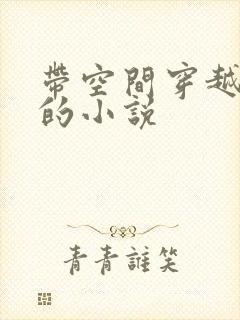 帶空間穿越
的小說
青青誰笑